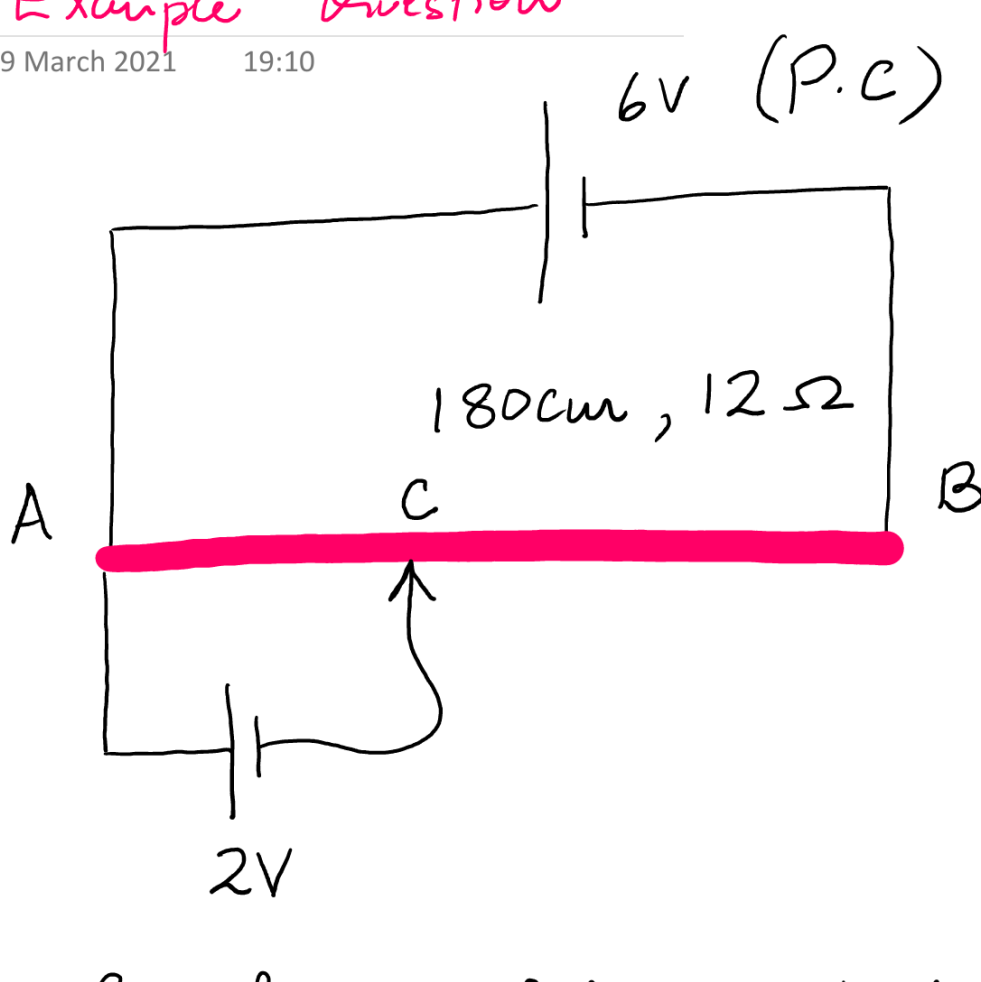 Example Question
9 March 2021 19:10
6V (P.C)
180cm, 12Ω
A C B
2V